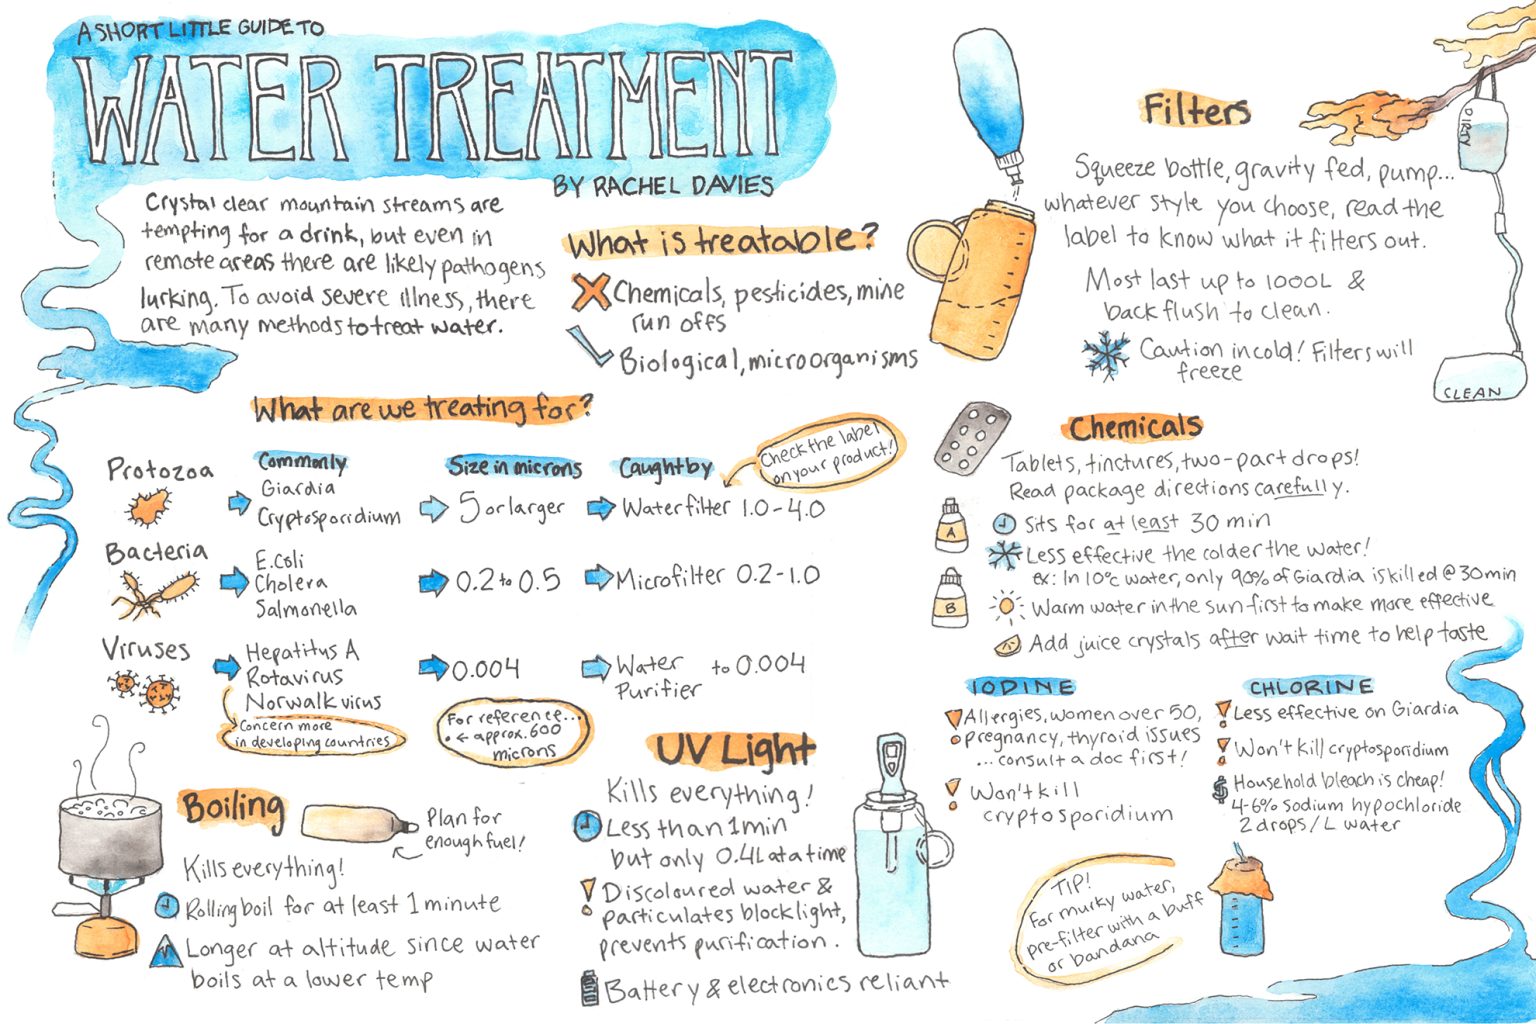 A SHORT LITTLE GUIDE TO
WATER TREATMENT
BY RACHEL DAVIES
Crystal clear mountain streams are
tempting for a drink, but even in
remote areas there are likely pathogens
lurking. To avoid severe illness, there
are many methods to treat water.
What is treatable?
Chemicals, pesticides, mine
run offs
Biological, microorganisms
Filters
Squeeze bottle, gravity fed, pump...
whatever style you choose, read the
label to know what it filters out.
Most last up to 1000L &
back flush to clean.
Caution in cold! Filters will
freeze
DIRTY
CLEAN
What are we treating for?
Commonly
Size in microns
Caught by
Check the label
on your product!
Protozoa
Giardia
Cryptosporidium
5 or larger
Water filter 1.0-4.0
Bacteria
E.Coli
Cholera
Salmonella
0.2 to 0.5
Microfilter 0.2-1.0
Viruses
Hepatitus A
Rotavirus
Norwalk virus
0.004
Water
Purifier
to 0.004
Concern more
in developing countries
For reference...
. ← approx. 600
microns
Chemicals
Tablets, tinctures, two-part drops!
Read package directions carefully.
A
B
Sits for at least 30 min
Less effective the colder the water!
ex: In 10°c water, only 90% of Giardia is killed @ 30 min
Warm water in the sun first to make more effective
Add juice crystals after wait time to help taste
IODINE
Allergies, women over 50,
pregnancy, thyroid issues
... consult a doc first!
Won't kill
cryptosporidium
CHLORINE
Less effective on Giardia
Won't kill cryptosporidium
$ Household bleach is cheap!
4-6% sodium hypochloride
2 drops/L water
Boiling
Plan for
enough fuel!
Kills everything!
Rolling boil for at least 1 minute
Longer at altitude since water
boils at a lower temp
UV Light
Kills everything!
Less than 1 min
but only 0.4L at a time
Discoloured water &
particulates block light,
prevents purification.
Battery & electronics reliant
TIP!
For murky water,
pre-filter with a buff
or bandana